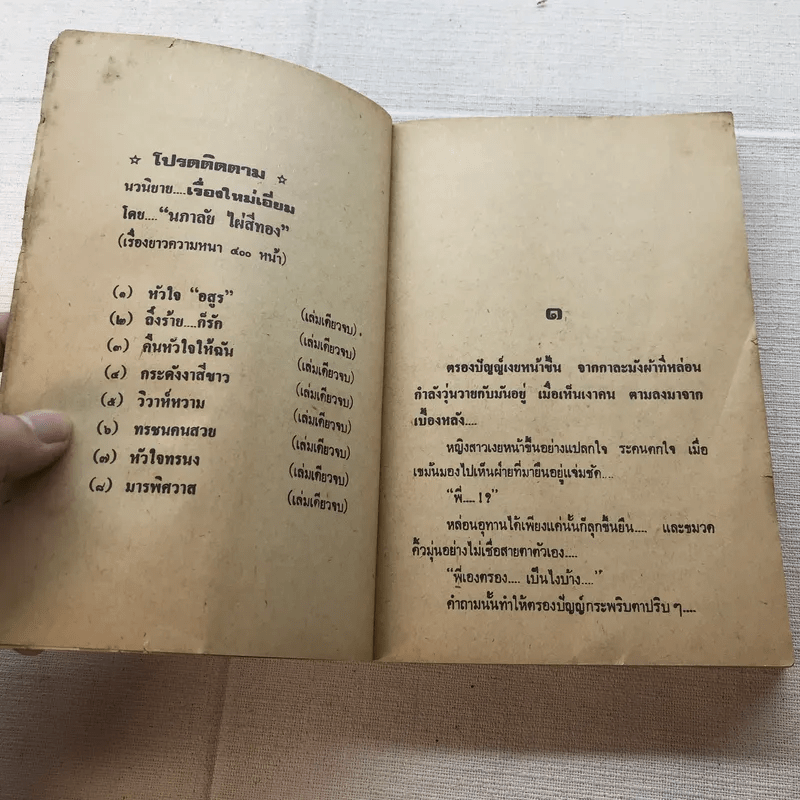 ☆ โปรดติดตาม ☆
นวนิยาย....เรื่องใหม่เอี่ยม
โดย...."นภาลัย ไผ่สีทอง"
(เรื่องยาวความหนา ๔๐๐ หน้า)
(๑) หัวใจ "อสูร" (เล่มเดียวจบ)
(๒) ถึงร้าย....ก็รัก (เล่มเดียวจบ)
(๓) คืนหัวใจให้ฉัน (เล่มเดียวจบ)
(๔) กระดังงาสีขาว (เล่มเดียวจบ)
(๕) วิวาห์หวาม (เล่มเดียวจบ)
(๖) ทรชนคนสวย (เล่มเดียวจบ)
(๗) หัวใจทรนง (เล่มเดียวจบ)
(๘) มารพิศวาส (เล่มเดียวจบ)
๑
ตรองปัญญ์เงยหน้าขึ้น จากกาละมังผ้าที่หล่อน
กำลังวุ่นวายกับมันอยู่ เมื่อเห็นเงาคน ตามลงมาจาก
เบื้องหลัง....
หญิงสาวเงยหน้าขึ้นอย่างแปลกใจ ระคนตกใจ เมื่อ
เขม้นมองไปเห็นฝ่ายที่มายืนอยู่แจ่มชัด....
"พี่....!?"
หล่อนอุทานได้เพียงแค่นั้นก็ลุกขึ้นยืน.... และขมวด
คิ้วมุ่นอย่างไม่เชื่อสายตาตัวเอง....
"พี่เองตรอง.... เป็นไงบ้าง...."
คำถามนั้นทำให้ตรองปัญญ์กระพริบตาปริบ ๆ....